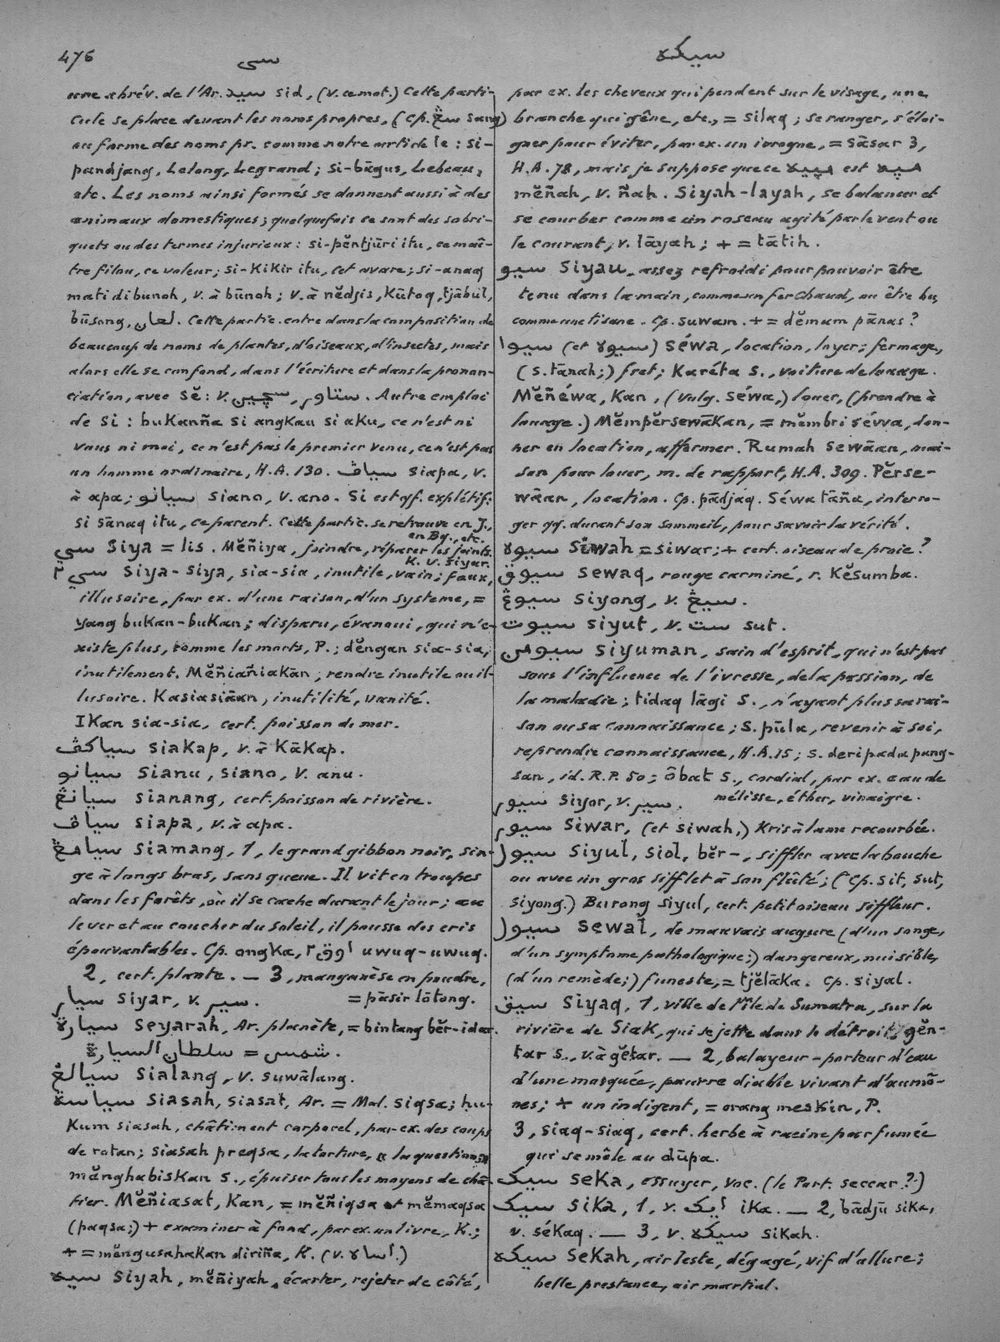 476
سى
سيکه
une abrév. de l'Ar. سيد sid, (v. ce mot.) Cette parti-
cule se place devant les noms propres, (cp. سڠ sang)
ou forme des noms pr. comme notre article le : si-
pandjang, Lelong, Legrand; si-bāgus, Lebeau,
etc. Les noms ainsi formés se donnent aussi à des
animaux domestiques; quelquefois ce sont des sobri-
quets ou des termes injurieux : si-pĕntjūri itu, ce maî-
tre filou, ce voleur; si-kikir itu, cet avare; si-anaq
mati dibunoh, v. à būnoh; v. à nĕdjis, Kūtoq, tjābul,
būsong, لعان. Cette partic. entre dans la composition de
beaucoup de noms de plantes, d'oiseaux, d'insectes, mais
alors elle se confond, dans l'écriture et dans la pronon-
ciation, avec sĕ : v. Autre emploi
de si : bukanña si angkau si aku, ce n'est ni
vous ni moi, ce n'est pas le premier venu, ce n'est pas
un homme ordinaire, H.A. 130. سياڤ siapa, v.
à apa; سيانو siano, v. ano. Si est qqf. explétif:
si sānaq itu, ce parent. Cette partic. se retrouve en J.,
en By., etc.
سي siya = lis. Mĕñiya, joindre, réparer les joints.
K. v. siyar.
سي٢ siya-siya, sia-sia, inutile, vain; faux,
illusoire, par ex. d'une raison, d'un systeme, =
yang bukan-bukan; disparu, évanoui, qui n'e-
xiste plus, comme les morts, P.; dĕngan sia-sia,
inutilement. Mĕñiañiakān, rendre inutile ou il-
lusoire. Kasiasiāan, inutilité, vanité.
Ikan sia-sia, cert. poisson de mer.
سياکڤ siakap, v. à Kākap.
سيانو sianu, siano, v. anu.
سيانڠ sianang, cert. poisson de rivière.
سياڤ siapa, v. à apa.
سيامڠ siamang, 1, le grand gibbon noir, sin-
ge à longs bras, sans queue. Il vit en troupes
dans les forêts, où il se cache durant le jour; au
lever et au coucher du soleil, il pousse des cris
épouvantables. Cp. ongka, اووق٢ uwuq-uwuq.
2, cert. plante. — 3, manganèse en poudre,
= pāsir lātong.
سيار siyar, v. سير.
سيارة seyarah, Ar. planète, = bintang bĕr-idar.
سلطان السيارة = شمس.
سيالڠ sialang, v. suwālang.
سياسة siasah, siasat, Ar. = Mal. siqsa; hu-
kum siasah, châtiment corporel, par ex. des coups
de rotan; siasah preqsa, la torture, la question;
mĕnghabiskan s., épuiser tous les moyens de châ-
tier. Mĕñiasat, kan, = mĕñiqsa et mĕmaqsa
(paqsa;) + examiner à fond, par ex. un livre, K.;
+ = mĕngusahakan diriña, K. (v. اساه.)
سيه siyah, mĕñiyah, écarter, rejeter de côté,
par ex. les cheveux qui pendent sur le visage, une
branche qui gêne, etc., = silaq; se ranger, s'éloi-
gner pour éviter, par ex. un ivrogne, = sāsar 3,
H.A. 78, mais je suppose que ce مييه est
mĕñah, v. ñah. Siyah-layah, se balancer et
se courber comme un roseau agité par le vent ou
le courant, v. lāyah; + = tātih.
سيو siyau, assez refroidi pour pouvoir être
tenu dans la main, comme un fer chaud, ou être bu,
comme une tisane. Cp. suwam. + = dĕmam pānas?
سيوا (et سيوه) séwa, location, loyer; fermage,
(s. tānah;) fret; Karéta s., voiture de louage.
Mĕñéwa, Kan, (vulg. séwa,) louer, (prendre à
louage.) Mĕmpĕrsewākan, = mĕmbri séwa, don-
ner en location, affermer. Rumah sewāan, mai-
son pour louer, m. de rapport, H.A. 309. Pĕrse-
wāan, location. Cp. pādjaq. Séwa tāña, interro-
ger qq. durant son sommeil, pour savoir la vérité.
سيوه siwah = siwar; + cert. oiseau de proie?
سيوق sewaq, rouge carminé, r. Kĕsumba.
سيوڠ siyong, v. سيڠ.
سيوت siyut, v. ست sut.
سيومن siyuman, sain d'esprit, qui n'est pas
sous l'influence de l'ivresse, de la passion, de
la maladie; tidaq lāgi s., n'ayant plus sa rai-
son ou sa connaissance; s. pūla, revenir à soi,
reprendre connaissance, H.A. 15; s. deripada pung-
san, id. R.P. 50; ôbat s., cordial, par ex. eau de
mélisse, éther, vinaigre.
سيور siyor, v. سير.
سيور siwar, (et siwah,) Kris à lame recourbée.
سيول siyul, siol, bĕr–, siffler avec la bouche
ou avec un gros sifflet à son flûté; (cp. sit, sut,
siyong.) Burong siyul, cert. petit oiseau siffleur.
سيول sewal, de mauvais augure (d'un songe,
d'un symptome pathologique;) dangereux, nuisible,
(d'un remède;) funeste, = tjĕlāka. Cp. siyal.
سيق siyaq, 1, ville de l'île de Sumatra, sur la
rivière de Siak, qui se jette dans le détroit; gĕn-
tar s., v. à gĕtar. — 2, balayeur-porteur d'eau
d'une mosquée, pauvre diable vivant d'aumô-
nes; + un indigent, = orang meskin, P.
3, siaq-siaq, cert. herbe à racine parfumée
qui se mêle au dūpa.
سيک seka, essuyer, voc. (le Port. seccar?)
سيک sika, 1, v. ايک ika. — 2, bādjū sika,
v. sékaq. — 3, v. سيکه sikah.
سيکه sekah, air leste, dégagé, vif d'allure;
belle prestance, air martial.